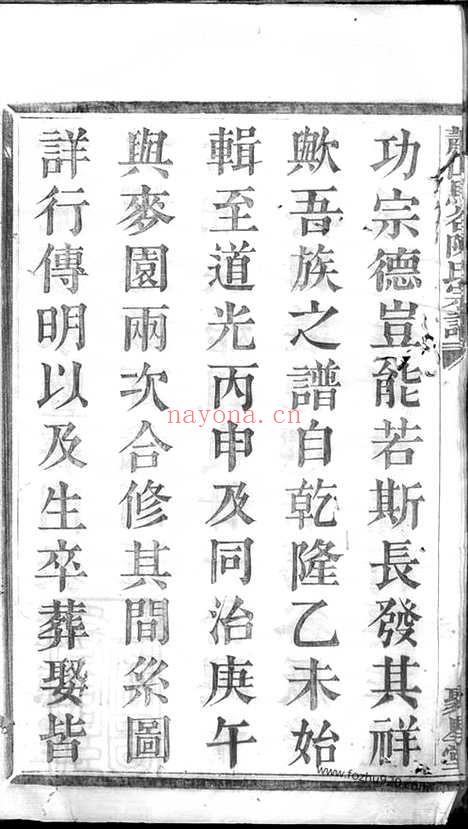 功宗德豈能若斯長發其祥
歟吾族之譜自乾隆乙未始
輯至道光丙申及同治庚午
與麥園兩次合修其間系圖
詳行傳明以及生卒葬娶皆
陳氏宗譜
nayona.cn